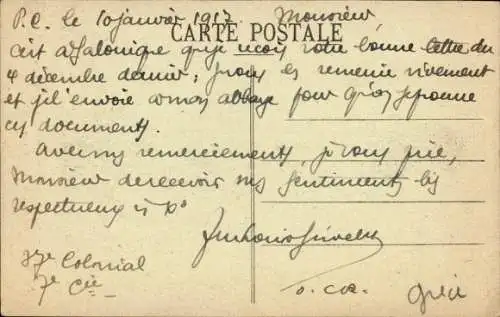 P.C. le 10 janvier 1917 Monsieur,
CARTE POSTALE
C'est à Salonique que je reçois votre bonne lettre du
4 décembre dernier; je vous en remercie vivement
et je l'envoie à mon abbaye pour qu'on
ces documents.
Avec mes remerciements, je vous prie,
Monsieur de recevoir mes sentiments bien
respectueux
37e Colonial
7e Cie